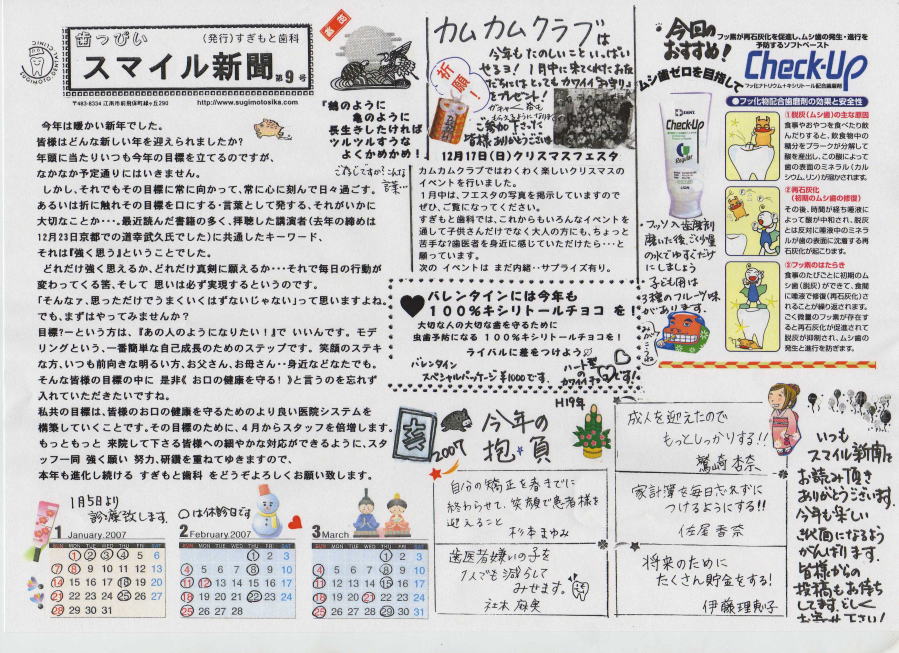 歯っぴい
(発行)すぎもと歯科
スマイル新聞
第9号
〒483-8334 江南市前飛保町緑ヶ丘290
http://www.sugimotosika.com
『鶴のように
亀のように
長生きしたければ
ツルツルすうな
よくかめかめ!』
ご存じですか?こんな
言葉
今年は暖かい新年でした。
皆様はどんな新しい年を迎えられましたか?
年頭に当たりいつも今年の目標を立てるのですが、
なかなか予定通りにはいきません。
しかし、それでもその目標に常に向かって、常に心に刻んで日々過ごす。
あるいは折に触れその目標を口にする・言葉として発する、それがいかに
大切なことか・・・。最近読んだ書籍の多く、拝聴した講演者(去年の締めは
12月23日京都での道幸武久氏でした)に共通したキーワード、
それは『強く思う』ということでした。
どれだけ強く思えるか、どれだけ真剣に願えるか・・・それで毎日の行動が
変わってくる筈、そして 思いは必ず実現するというのです。
「そんなァ、思っただけでうまくいくはずないじゃない」って思いますよね。
でも、まずはやってみませんか?
目標?ーという方は、『あの人のようになりたい!』で いいんです。モデ
リングという、一番簡単な自己成長のためのステップです。笑顔のステキ
な方、いつも前向きな明るい方、お父さん、お母さん・身近などなたでも。
そんな皆様の目標の中に 是非《 お口の健康を守る!》と言うのを忘れず
入れていただきたいですね。
私共の目標は、皆様のお口の健康を守るためのより良い医院システムを
構築していくことです。その目標のために、4月からスタッフを倍増します。
もっともっと 来院して下さる皆様への細やかな対応ができるように、スタ
ッフ一同 強く願い 努力、研鑽を重ねてゆきますので、
本年も進化し続ける すぎもと歯科 をどうぞよろしくお願い致します。
1月5日より
診療致します。
○は休診日です
1 January, 2007
SUN MON TUE WED THU FRI SAT
1 2 3 4 5 6
7 8 9 10 11 12 13
14 15 16 17 18 19 20
21 22 23 24 25 26 27
28 29 30 31
2 February, 2007
SUN MON TUE WED THU FRI SAT
1 2 3
4 5 6 7 8 9 10
11 12 13 14 15 16 17
18 19 20 21 22 23 24
25 26 27 28
3 March
SUN MON TUE WED THU FRI SAT
1 2 3
4 5 6 7 8 9 10
11 12 13 14 15 16 17
18 19 20 21 22 23 24
25 26 27 28 29 30 31
カムカムクラブは
今年もたのしいこといっぱい
せるヨ! 1月中に来てくれたお友
だちにはとってもカワイイお守り
をプレゼント!
祈願
ご参加下さった
皆様ありがとうございました
12月17日(日)クリスマスフェスタ
カムカムクラブではわくわく楽しいクリスマスの
イベントを行いました。
1月中は、フエスタの写真を掲示していますので
ぜひ、ご覧になってください。
すぎもと歯科では、これからもいろんなイベント
を通して子供さんだけでなく大人の方にも、ちょっと
苦手な?歯医者を身近に感じていただけたら・・・と
願っています。
次の イベントは まだ内緒・・サプライズ有り。
バレンタインには今年も
100%キシリトールチョコ を!
大切な人の大切な歯を守るために
虫歯予防になる 100%キシリトールチョコを!
ライバルに差をつけよう
バレンタイン
スペシャルパッケージ ¥1000です。
ハート型
の
カワイイチョコです!
2007
H19年
今年の
抱負
自分の矯正を春までに
終わらせて、笑顔で患者様を
迎えること
杉本まゆみ
歯医者嫌いの子を
1人でも減らして
みせます。
社本 麻実
成人を迎えたので
もっとしっかりする!!
鷲崎 杏奈
家計簿を毎日忘れずに
つけるようにする!!
佐尾 香奈
将来のために
たくさん貯金をする!
伊藤理恵子
今回の
おすすめ!
ムシ歯ゼロを目指して
フッ素が再石灰化を促進し、ムシ歯の発生・進行を
予防するソフトペースト
Check-Up
フッ化ナトリウム+キシリトール配合歯磨剤
Check-Up
Regular
・フッソ入歯磨剤
磨いた後、ごく少量
の水でゆすぐだけ
にしましょう
・子ども用は
3種のフルーツ味
があります。
●フッ化物配合歯磨剤の効果と安全性
①脱灰(ムシ歯)の主な原因
食事やおやつを食べたり飲
んだりすると、飲食物中の
糖分をプラークが分解して
酸を産出し、この酸によって
歯の表面のミネラル(カル
シウム、リン)が溶かされます。
②再石灰化
(初期のムシ歯の修復)
その後、時間が経ち唾液に
よって酸が中和され、脱灰
とは反対に唾液中のミネ
ラルが歯の表面に沈着する再
石灰化が起こります。
③フッ素のはたらき
食事のたびごとに初期のムシ
歯(脱灰)ができて、食間
に唾液で修復(再石灰化)さ
れることが繰り返されます。
ごく微量のフッ素が存在す
ると再石灰化が促進されて
脱灰が抑制され、ムシ歯の
発生と進行を防ぎます。
いつも
スマイル新聞を
お読み頂き
ありがとうございます。
今年も楽しい
紙面になるよう
がんばります。
皆様からの
投稿もお待ち
してます。どしどし
お寄せ下さい!